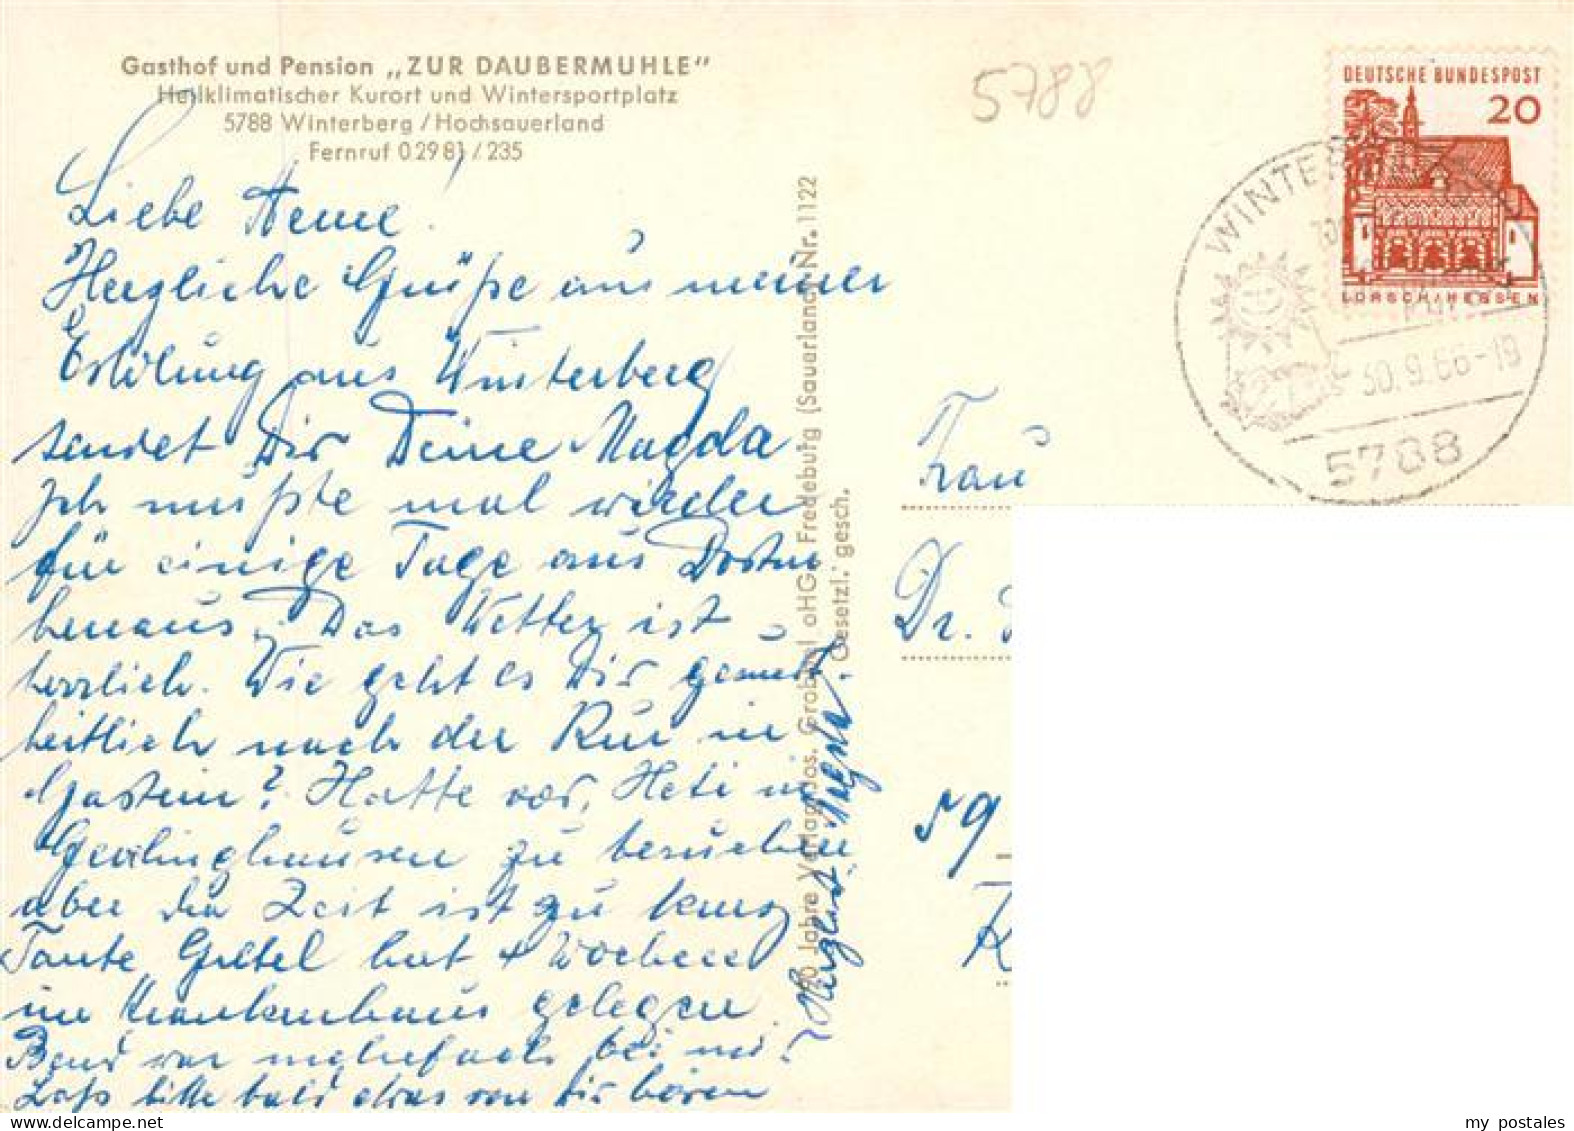 Gasthof und Pension „ZUR DAUBERMUHLE"
Heilklimatischer Kurort und Wintersportplatz
5788 Winterberg / Hochsauerland
Fernruf 0 29 81 / 235
Liebe Anne!
Herzliche Grüße aus meiner
Erholung aus Winterberg
sendet Dir Deine Magda
Ich mußte mal wieder
für einige Tage aus Dortm
heraus. Das Wetter ist
herrlich. Wie geht es Dir gesund-
heitlich nach der Kur in
Gastein? Hatte vor, Heti in
zu besuchen
aber die Zeit ist zu kurz
Tante Gretel hat 4 Wochen
im Krankenhaus gelegen
Bernd war mehrfach bei mir
Laß bitte bald etwas von Dir hören
Herzlichst Magda
70 Jahre Verlag Jos. Grobbel oHG. Fredeburg (Sauerland) Nr. 1122
Gesetzl. gesch.
5788
DEUTSCHE BUNDESPOST
20
LORSCH/HESSEN
WINTERBERG
30.9.66-19
5788
Frau
Dr.
59
K
my postales